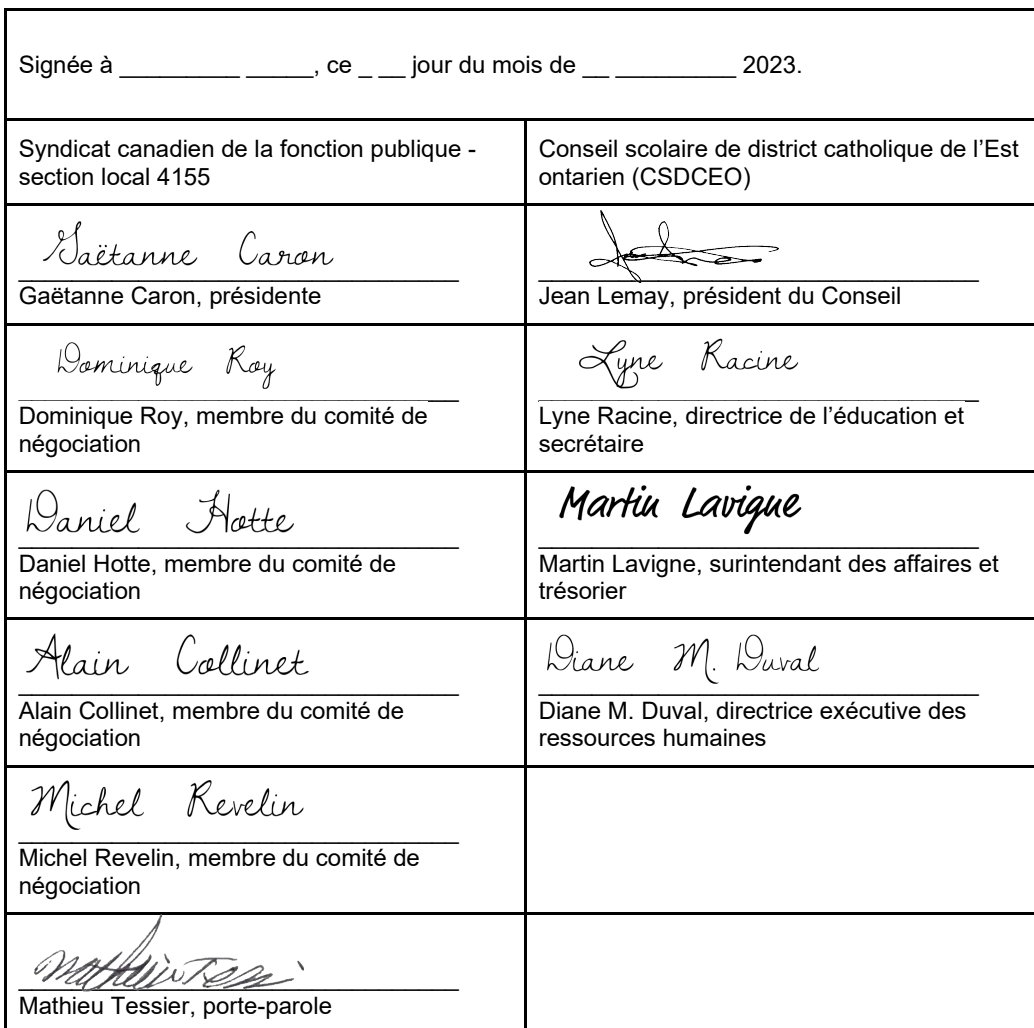 Signée à _________ _____, ce _ __ jour du mois de __ _________ 2023.
Syndicat canadien de la fonction publique -
section local 4155
Conseil scolaire de district catholique de l’Est
ontarien (CSDCEO)
Gaëtanne Caron
Gaëtanne Caron, présidente
Jean Lemay, président du Conseil
Dominique Roy
Dominique Roy, membre du comité de
négociation
Lyne Racine
Lyne Racine, directrice de l’éducation et
secrétaire
Daniel Hotte
Daniel Hotte, membre du comité de
négociation
Martin Lavigne
Martin Lavigne, surintendant des affaires et
trésorier
Alain Collinet
Alain Collinet, membre du comité de
négociation
Diane M. Duval
Diane M. Duval, directrice exécutive des
ressources humaines
Michel Revelin
Michel Revelin, membre du comité de
négociation
Mathieu Tessier, porte-parole